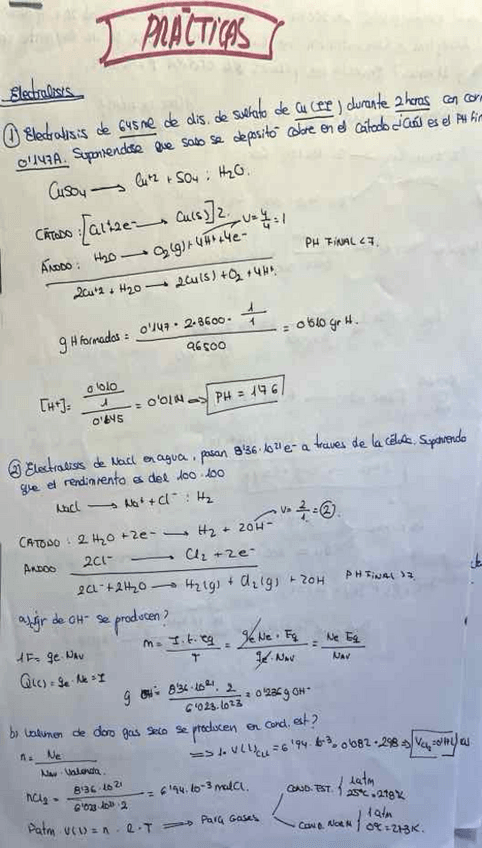 PRÁCTICAS
Electrolisis
① Electrolisis de 645ml de dis. de sulfato de Cu(II) durante 2 horas con corr
0'147A. Suponiendose que solo se deposito cobre en el catodo ¿Cuál es el PH fin
CuSO4 → Cu+2 + SO4 ; H2O.
CÁTODO: [Cu+2+2e- → Cu(s)]2. V=4/4=1
ÁNODO: H2O → O2(g)+4H++4e- PH FINAL <7.
2Cu+2 + H2O → 2Cu(s)+O2+4H+
g H formados = 0'147 · 2·3600 · 1/1 / 96500 = 0'010 gr H.
[H+]= 0'010/1 / 0'645 = 0'01M => PH = 1'76
② Electrolisis de NaCl en agua, pasan 8'36·10²¹e- a traves de la célula. Suponiendo
que el rendimiento es del 100·100
NaCl → Na+ + Cl- : H2
CATODO: 2H2O +2e- → H2 + 2OH- V=2/1=②.
ANODO 2Cl- → Cl2 +2e-
2Cl-+2H2O → H2(g) + Cl2(g) + 2OH PH FINAL >7
a) ¿gr de OH- se producen?
1F= qe·NAV m= I.t.eq/T = qe Ne · Eq / qe·NAV = Ne Eq / NAV
Q(C)= qe·Ne=I
g OH-= 8'36·10²¹·2 / 6'023·10²³ = 0'236 g OH-
b) Volumen de cloro gas seco se producen en cond. est?
n= Ne / NAV·Valencia. => 1·V(l)Cl2 = 6'94·10-3·0'082·298 => VCl2
nCl2 = 8'36·10²¹ / 6'023·10²³·2 = 6'94·10-3 mol Cl. COND. EST. 1atm 25ºC=298K
Patm·V(l)=n·R·T => Para Gases COND. NORM 1atm 0ºC=273K